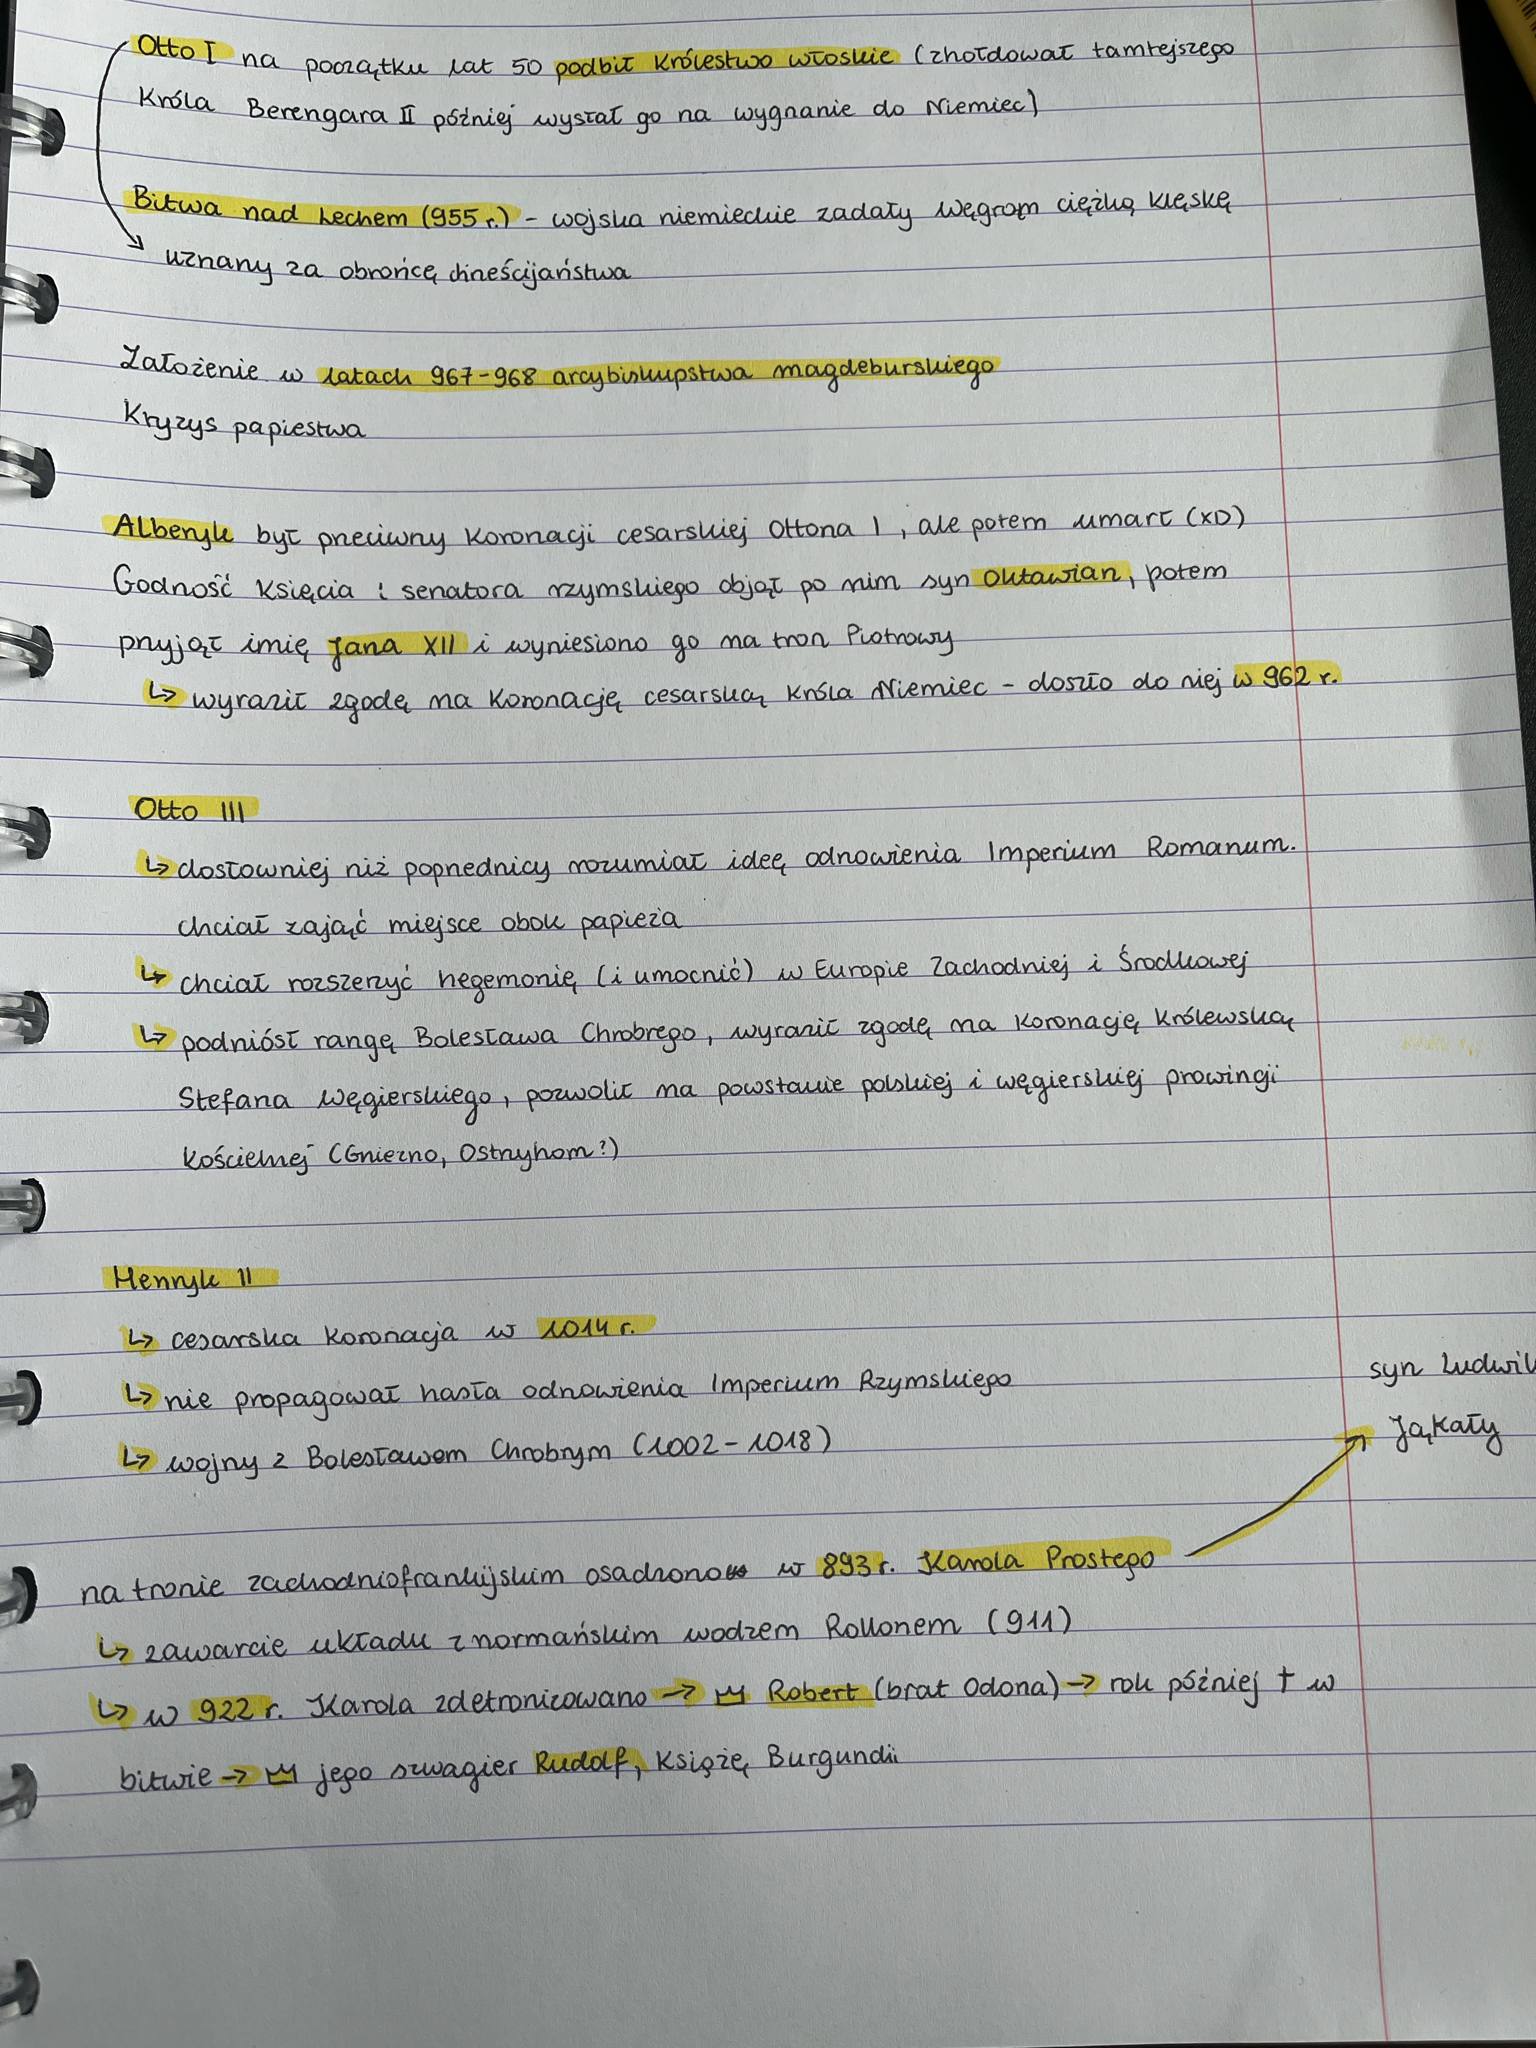 Otto I na początku lat 50 podbił Królestwo włoskie (zhołdował tamtejszego
Króla Berengara II później wysłał go na wygnanie do Niemiec)
Bitwa nad Lechem (955 r.) - wojska niemieckie zadały Węgrom ciężką klęskę
uznany za obrońcę chrześcijaństwa
Założenie w latach 967-968 arcybiskupstwa magdeburskiego
Kryzys papiestwa
Alberyk był przeciwny koronacji cesarskiej Ottona I, ale potem umarł (XD)
Godność księcia i senatora rzymskiego objął po nim syn Oktawian, potem
przyjął imię Jana XII i wyniesiono go na tron Piotrowy
↳ wyraził zgodę na koronację cesarską króla Niemiec - doszło do niej w 962 r.
Otto III
↳ dosłowniej niż poprzednicy rozumiał ideę odnowienia Imperium Romanum.
chciał zająć miejsce obok papieża
↳ chciał rozszerzyć hegemonię (i umocnić) w Europie Zachodniej i Środkowej
↳ podniósł rangę Bolesława Chrobrego, wyraził zgodę na koronację królewską
Stefana Węgierskiego, pozwolił na powstanie polskiej i węgierskiej prowincji
kościelnej (Gniezno, Ostrzyhom?)
Henryk II
↳ cesarska koronacja w 1014 r.
↳ nie propagował hasła odnowienia Imperium Rzymskiego
↳ wojny z Bolesławem Chrobrym (1002-1018)
syn Ludwik
Jąkały
na tronie zachodniofrankijskim osadzono w 893 r. Karola Prostego
↳ zawarcie układu z normańskim wodzem Rollonem (911)
↳ w 922 r. Karola zdetronizowano → Robert (brat Odona) → rok później † w
bitwie → jego szwagier Rudolf, Książę Burgundii